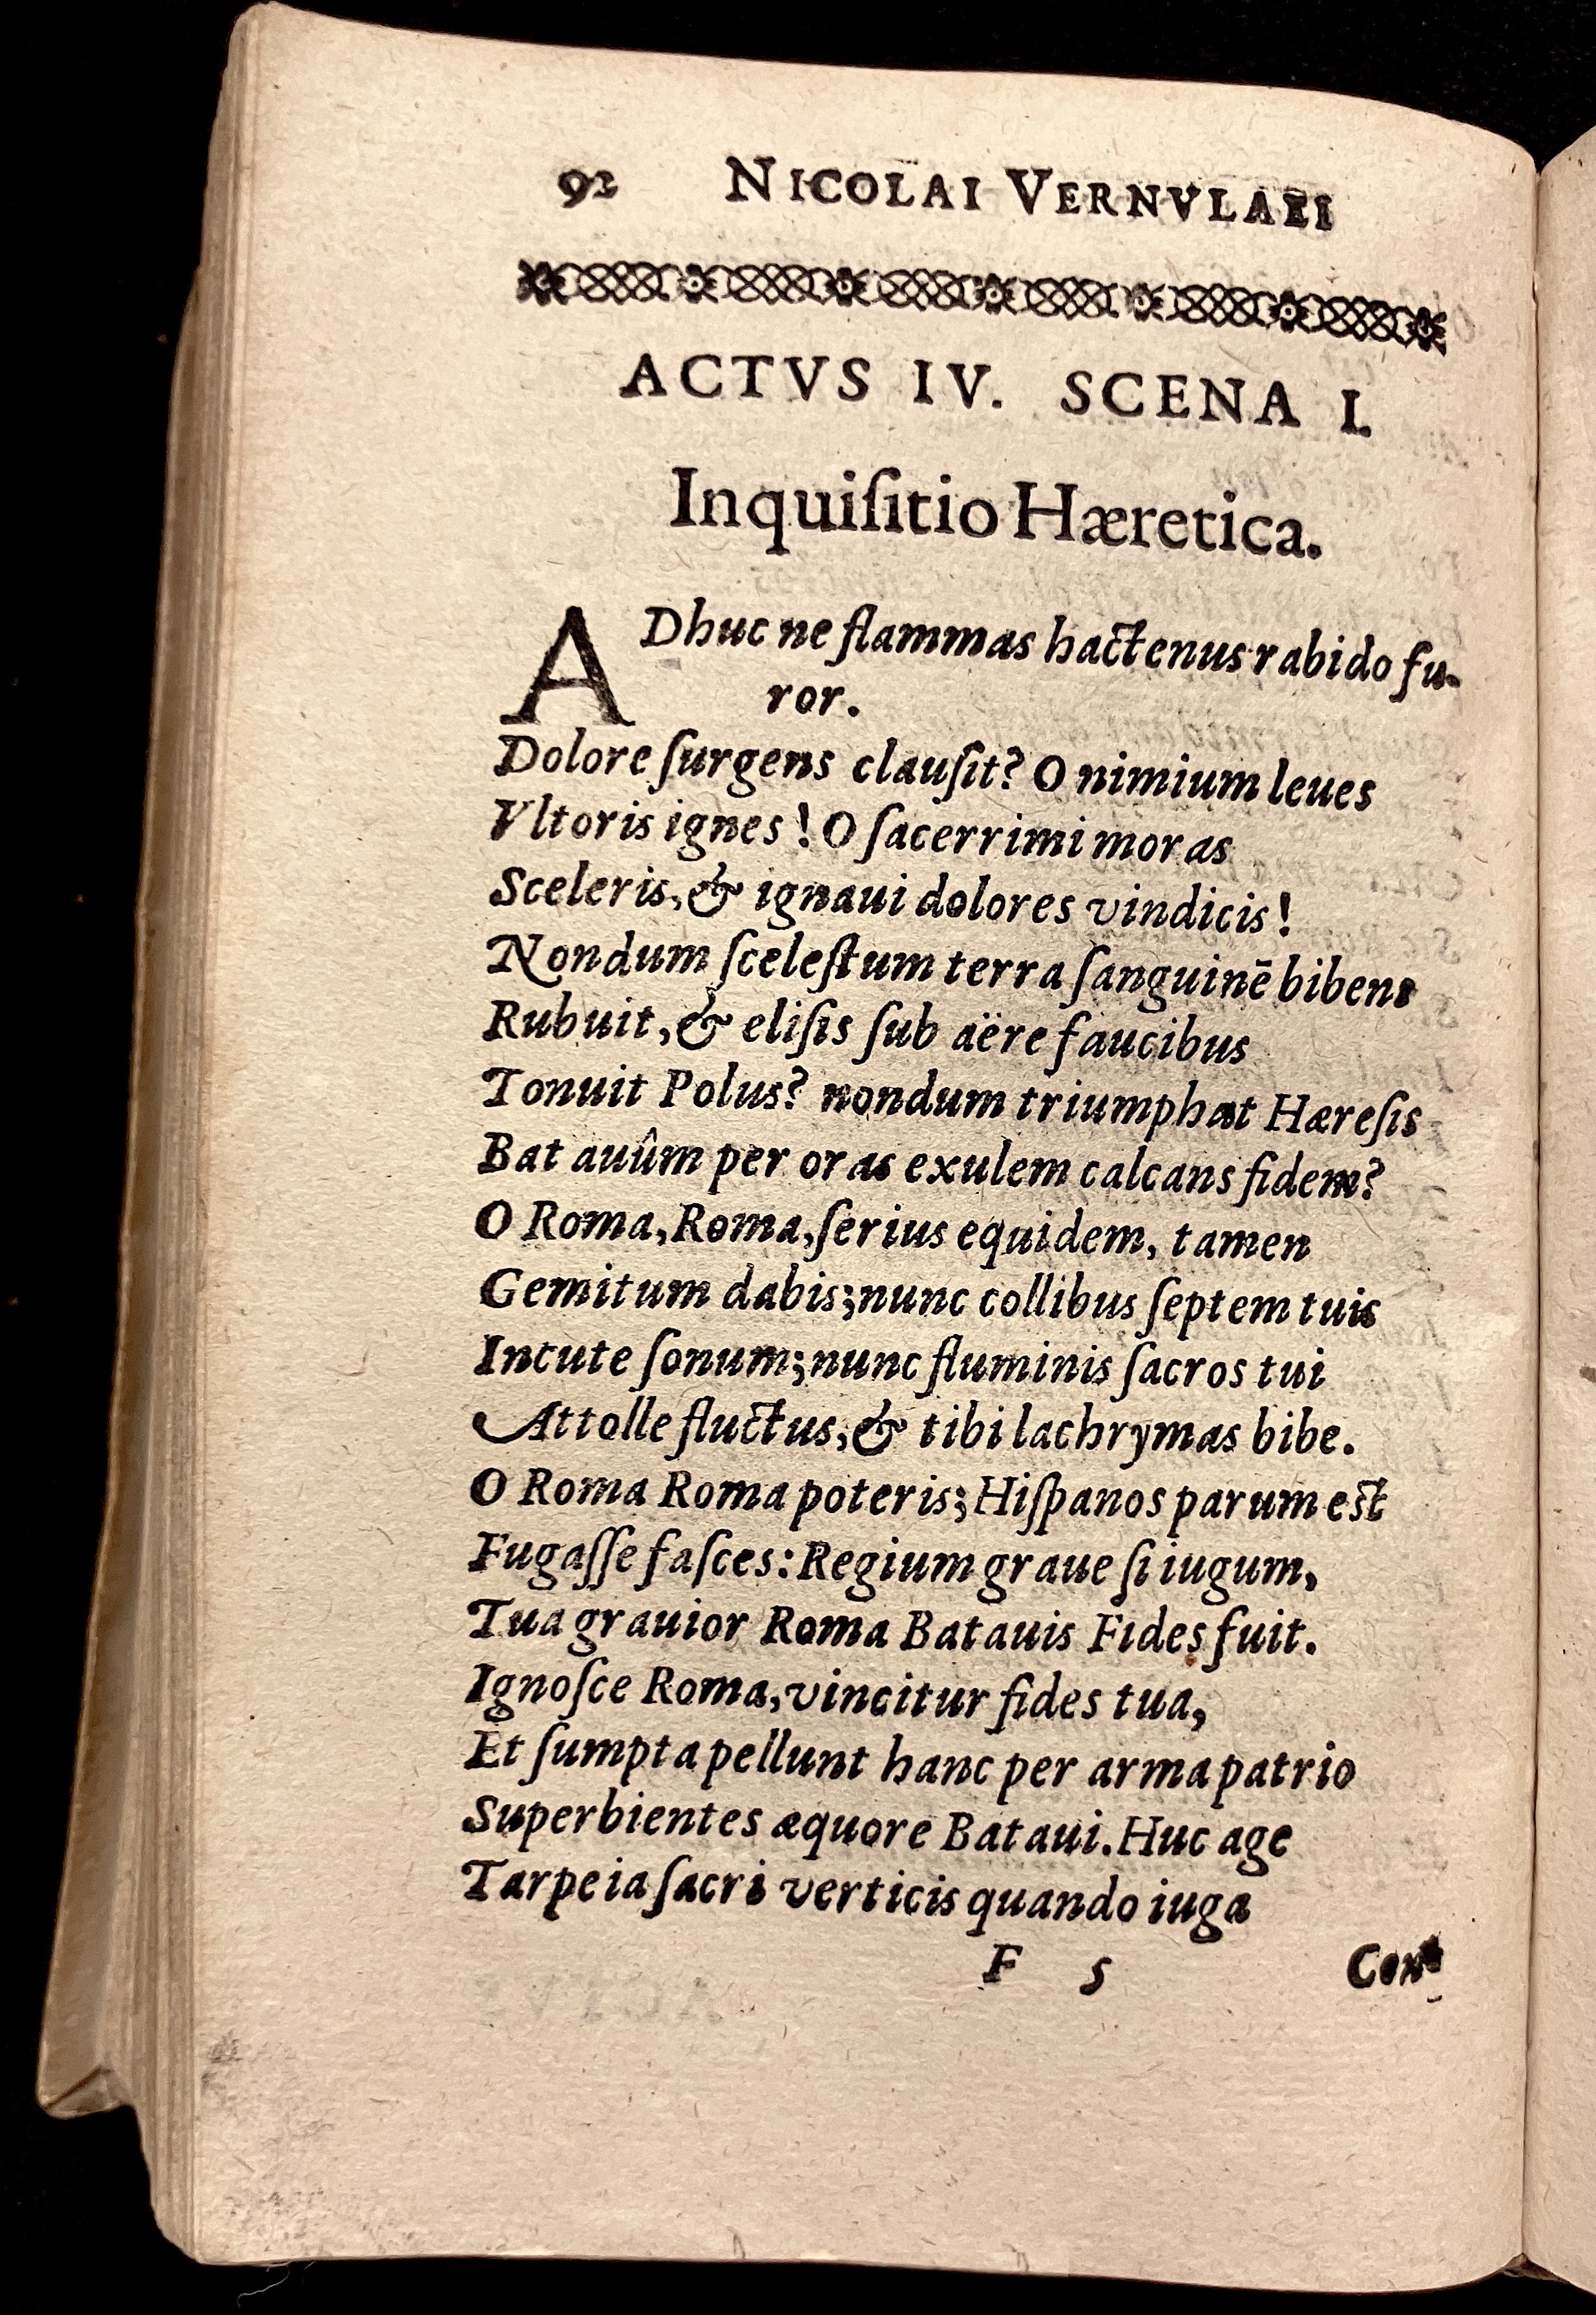 92 NICOLAI VERNVLAEI
ACTVS IV. SCENA I.
Inquiſitio Hæretica.
ADhuc ne flammas hactenus rabido fu-
ror.
Dolore ſurgens clauſit? O nimium leues
Vltoris ignes! O ſacerrimi moras
Sceleris, & ignaui dolores vindicis!
Nondum ſceleſtum terra ſanguinē bibens
Rubuit, & eliſis ſub aëre faucibus
Tonuit Polus? nondum triumphat Hæreſis
Batauûm per oras exulem calcans fidem?
O Roma, Roma, ſerius equidem, tamen
Gemitum dabis; nunc collibus ſeptem tuis
Incute ſonum; nunc fluminis ſacros tui
Attolle fluctus, & tibi lachrymas bibe.
O Roma Roma poteris; Hiſpanos parum est
Fugaſſe faſces: Regium graue ſi iugum,
Tua grauior Roma Batauis Fides fuit.
Ignoſce Roma, vincitur fides tua,
Et ſumpta pellunt hanc per arma patrio
Superbientes æquore Bataui. Huc age
Tarpeia ſacri verticis quando iuga
F 5